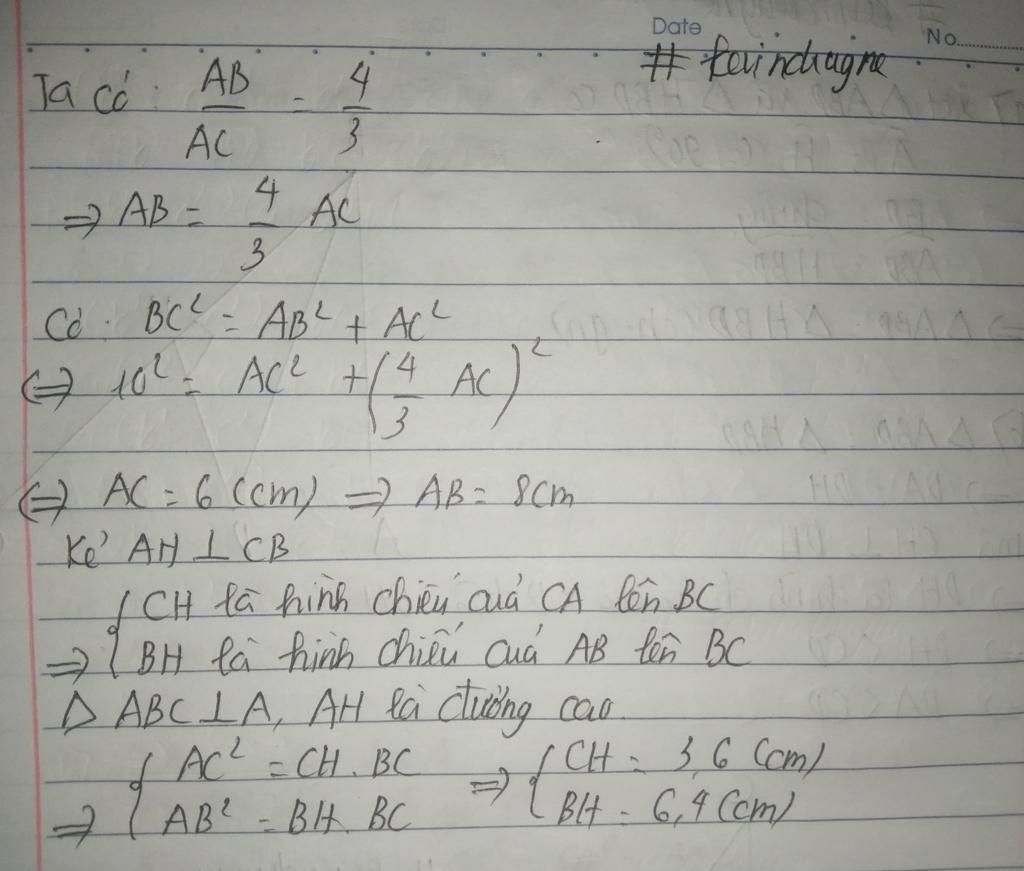 Date No
# kevinchagne
Ta có: AB/AC = 4/3
=> AB = 4/3 AC
Có: BC² = AB² + AC²
<=> 10² = AC² + (4/3 AC)²
<=> AC = 6 (cm) => AB = 8cm
Kẻ AH ⊥ CB
=> { CH là hình chiếu của CA lên BC
BH là hình chiếu của AB lên BC
Δ ABC ⊥ A, AH là đường cao
=> { AC² = CH. BC => { CH = 3,6 (cm)
AB² = BH. BC BH = 6,4 (cm)